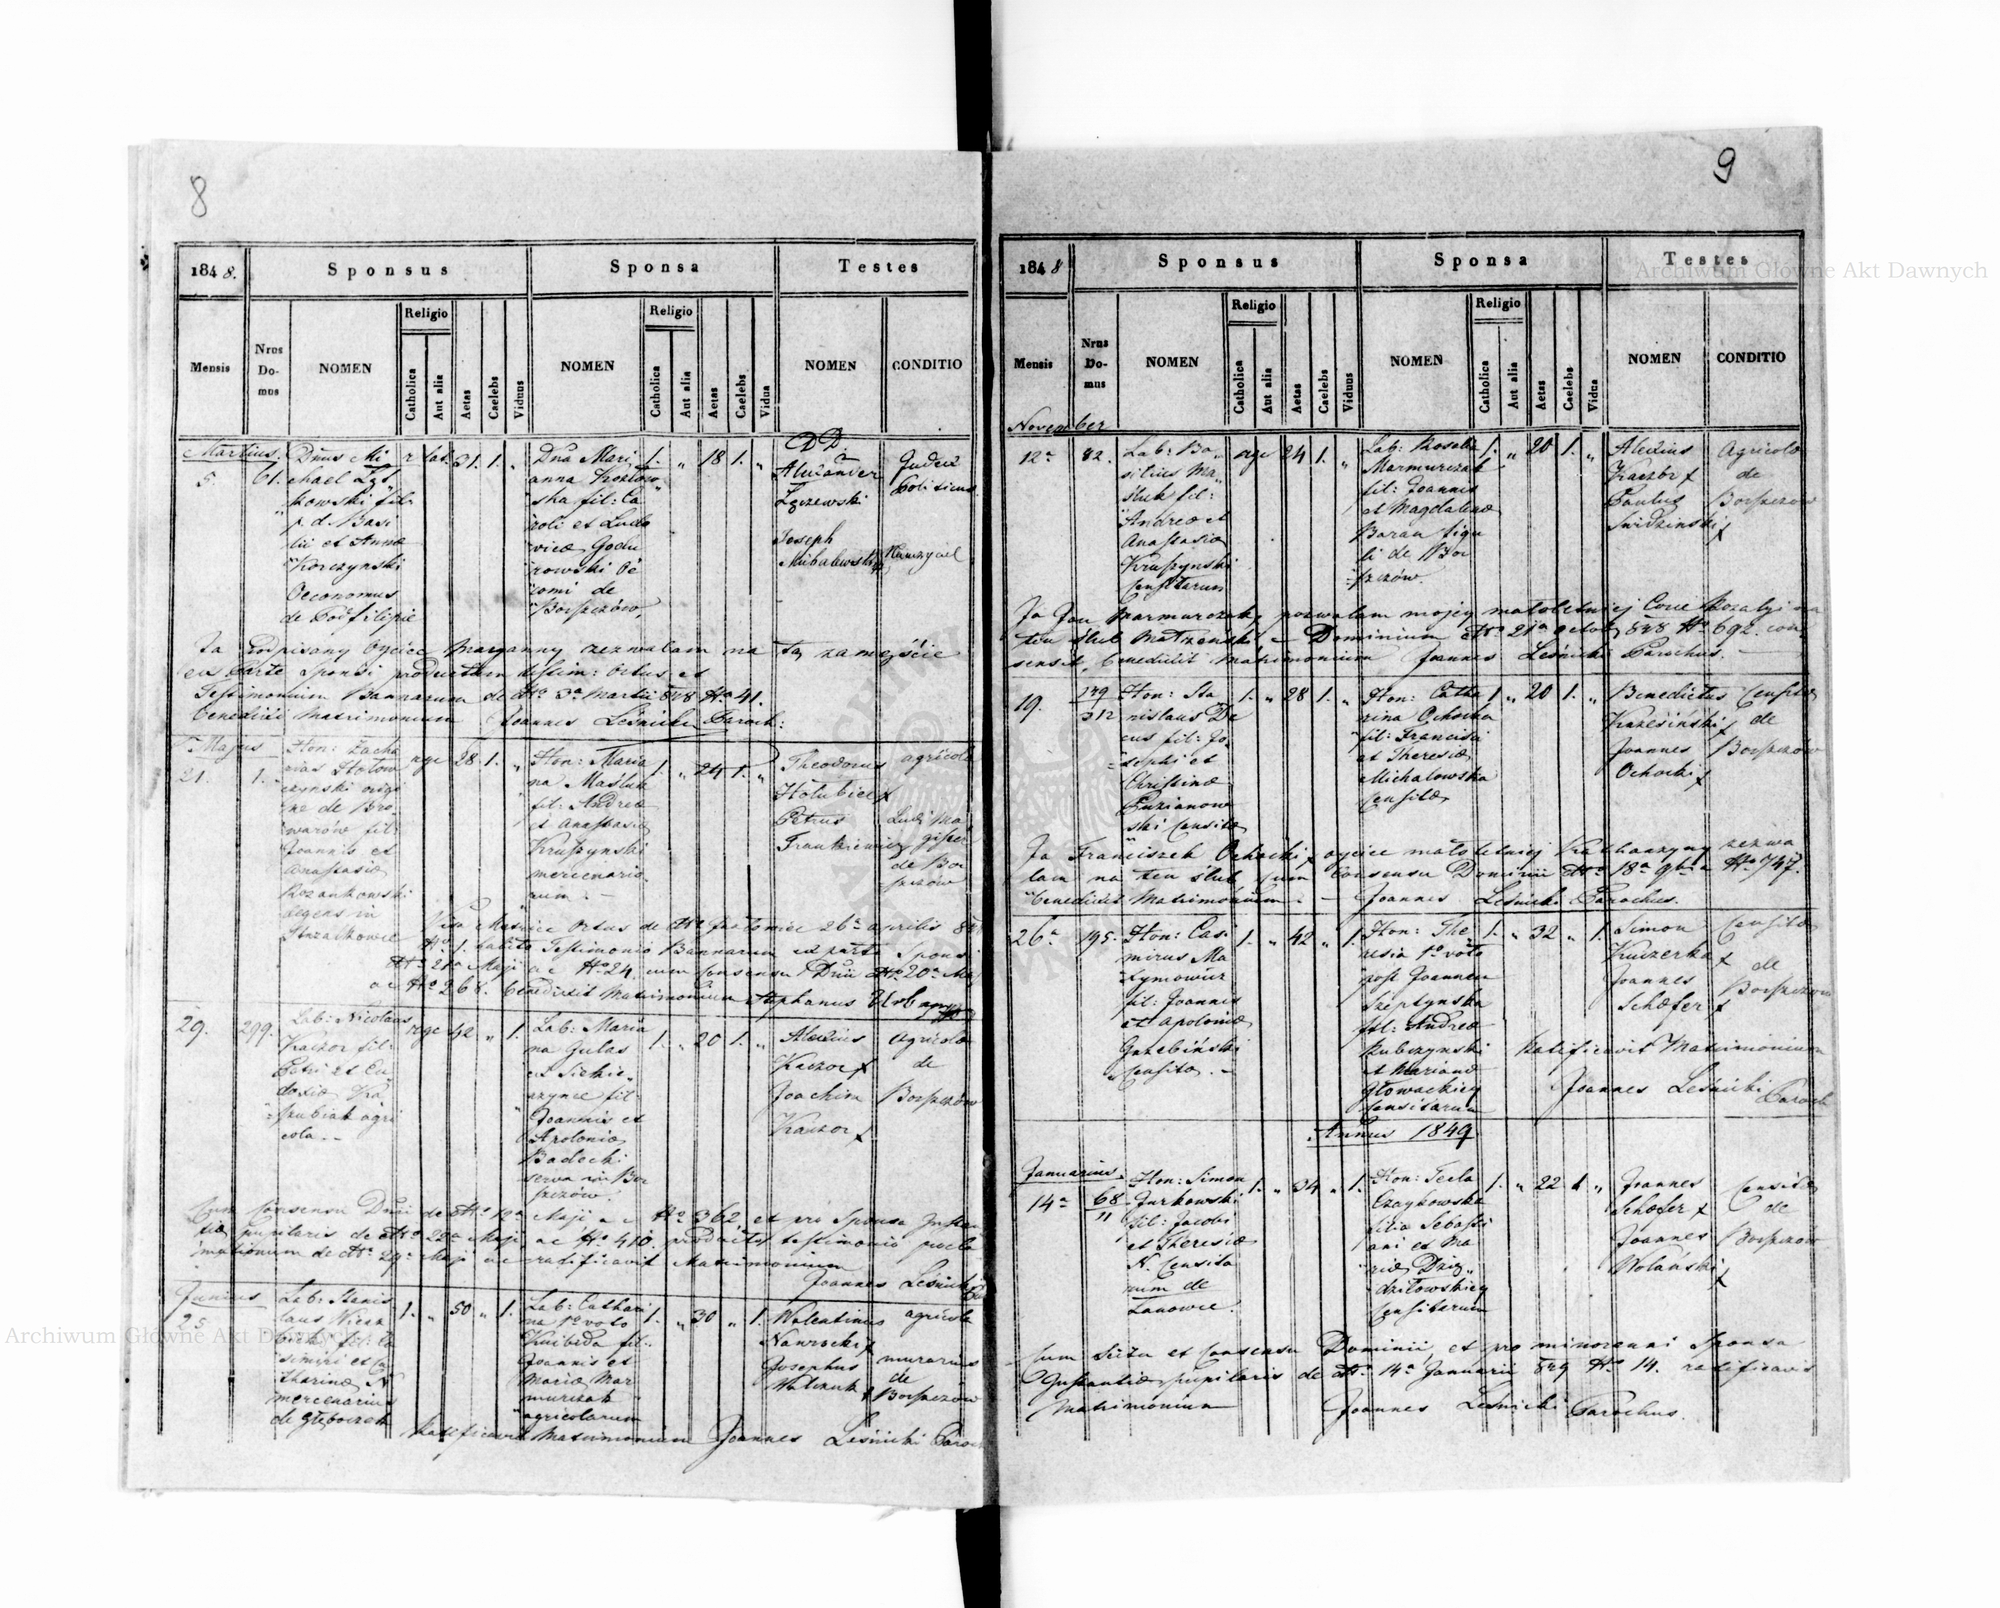 8
1848.
Sponsus
Sponsa
Testes
Mensis
Nros Do-mus
NOMEN
Religio
Catholica
Aut alia
Aetas
Caelebs
Viduus
NOMEN
Religio
Catholica
Aut alia
Aetas
Caelebs
Vidua
NOMEN
CONDITIO
Martius
5.
61.
Dnus Mi
chael
kowski fil:
p. d. Basi
lii et Annæ
Korczynski
Oeconomus
de
31. 1. "
Dna Mari
anna
ska fil: Ca
roli et Ludo
vicæ
rowski
de
Borszczów
1. " 18 1. "
DD
Alexander
Joseph
Judex
Politicus
Ja Podpisany Oyciec Maryanny zezwalam na to zamęście
ex parte Sponsi productum testim: Ortus et
Testimonium Bannorum de dtto 3a Martii 848 Nro 41.
benedixi Matrimonium Joannes Leśnicki Paroch:
Majus
21.
1.
Hon: Zacha
rias
czynski origi
ne de Bro
warów fil:
Joannis et
Anastasiæ
Rozankowski
degens in
Strzałkowce
rgr 28 1. "
Hon: Maria
na Maśluk
fil: Andreæ
et Anastasiæ
Kruszynski
mercenario
rum. -
1. " 24 1. "
Theodorus
Hołubiec x
Petrus
Frankiewicz
agricola
Ludi Ma
gister
de Bor
szczów
Aprilis
ex parte Sponsi
Nro 268. benedixit Matrimonium Stephanus
29.
299.
Lab: Nicolaus
Kaczor fil:
Petri et Eu
doxiæ Ka
szubiak agri
cola. -
rgr 42 " 1.
Lab: Maria
na Gulas
ex Sickie
rzynce fil:
Joannis et
Apoloniæ
Badecki
serva in Bor
szczów.
1. " 20 1. "
Alexius
Kaczor x
Joachim
Kaczor x
Agricolæ
de
Borszczów
Cum Consensu Dnii de dtto 12a Maji a c Nro 362, et pro Sponsa Instan
tiæ pupilaris de dtto 22a Maji ac Nro 410. producto testimonio procla
mationum de dtto 29a Maji ac ratificavit Matrimonium
Joannes Leśnicki
Junius
25
Lab: Stanis
laus
fil: Ca
simiri et Ca
tharinæ N
mercenarius
de Głęboczek
1. " 50 " 1.
Lab: Cathari
na 1o voto
fil:
Joannis et
Mariæ Mar
murczak
agricolarum
1. " 30 " 1.
Walentinus
Nawrocki x
Josephus
Walczuk x
agricola
murarius
de
Borszczów
Ratificavit Matrimonium Joannes Leśnicki Paroch
9
1848
Sponsus
Sponsa
Testes
Mensis
Nrus Do-mus
NOMEN
Religio
Catholica
Aut alia
Aetas
Caelebs
Viduus
NOMEN
Religio
Catholica
Aut alia
Aetas
Caelebs
Vidua
NOMEN
CONDITIO
November
12a
82.
Lab: Ba
silius Ma
śluk fil:
Andreæ et
Anastasiæ
Kruszynski
Censitarum
rgr 24 1. "
Lab: Rosalia
Marmurczak
fil: Joannis
et Magdalenæ
Baran figu
li de Bor
szczów.
1. " 20 1. "
Alexius
Kaczor x
Paulus
Swidzinski x
Agricolæ
de
Borszczów
Ja Jan Marmurczak, pozwalam mojey małoletniej Córce Rozalyi na
ten ślub Małżeński - Dominium dtto 21a Octob: 848 Nro 692. con
sensit, benedixit Matrimonium Joannes Leśnicki Parochus.
19.
179
312
Hon: Sta
nislaus De
cus fil: Jo
sephi et
Christinæ
Puzianow
ski Censitæ
1. " 28 1. "
Hon: Catha
rina Ochocka
fil: Francisci
et Theresiæ
Michalowska
Censitæ
1. " 20 1. "
Benedictus
Krzesiński x
Joannes
Ochocki x
Censitæ
de
Borszczów
Ja Franciszek Ochocki x oyciec małoletniej Katharzyny zezwa
lam na ten ślub cum Consensu Dominii dtto 18a 9bris Nro 747.
benedixit Matrimonium - Joannes Leśnicki Parochus.
26a
195.
Hon: Casi
mirus Ma
xymowicz
fil: Joannis
et Apoloniæ
Grzebiński
Censitæ. -
1. " 42 " 1.
Hon: The
resia 1o voto
post Joannem
Szeptynska
fil: Andreæ
Rubczynski
et Mariannæ
Głowackiey
Censitarum
1. " 32 " 1.
Simon
Kuczerka x
Joannes
Schefer x
Censitæ
de
Borszczów
Ratificavit Matrimonium
Joannes Leśnicki
Paroch
Annus 1849
Januarius
14a
68
11
Hon: Simon
Jurkowski
fil: Jacobi
et Theresiæ
N. Censita
rum de
Łanowce.
1. " 34 " 1.
Hon: Tecla
Czaykowska
filia Sebasti
ani et Ma
riæ Dzig
dziłowskiey
Censitarum
1. " 22 1 "
Joannes
Schefer x
Joannes
Wolański
x
Censitæ
de
Borszczów
Cum Scitu et Consensu Dominii, et pro minorenni Sponsa
Instantiæ pupilaris de dtto 14a Januarii 849 Nro 14. ratificavit
Matrimonium Joannes Leśnicki Parochus.
Archiwum Główne Akt Dawnych
Archiwum Główne Akt Dawnych